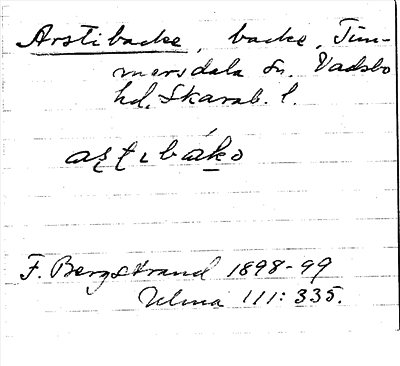 Arstibacke, backe, Tim-
mersdala sn. Vadsbo
hd, Skarab. l.
aʂtɩbáko
F. Bergstrand 1898-99
Ulma 111: 335.